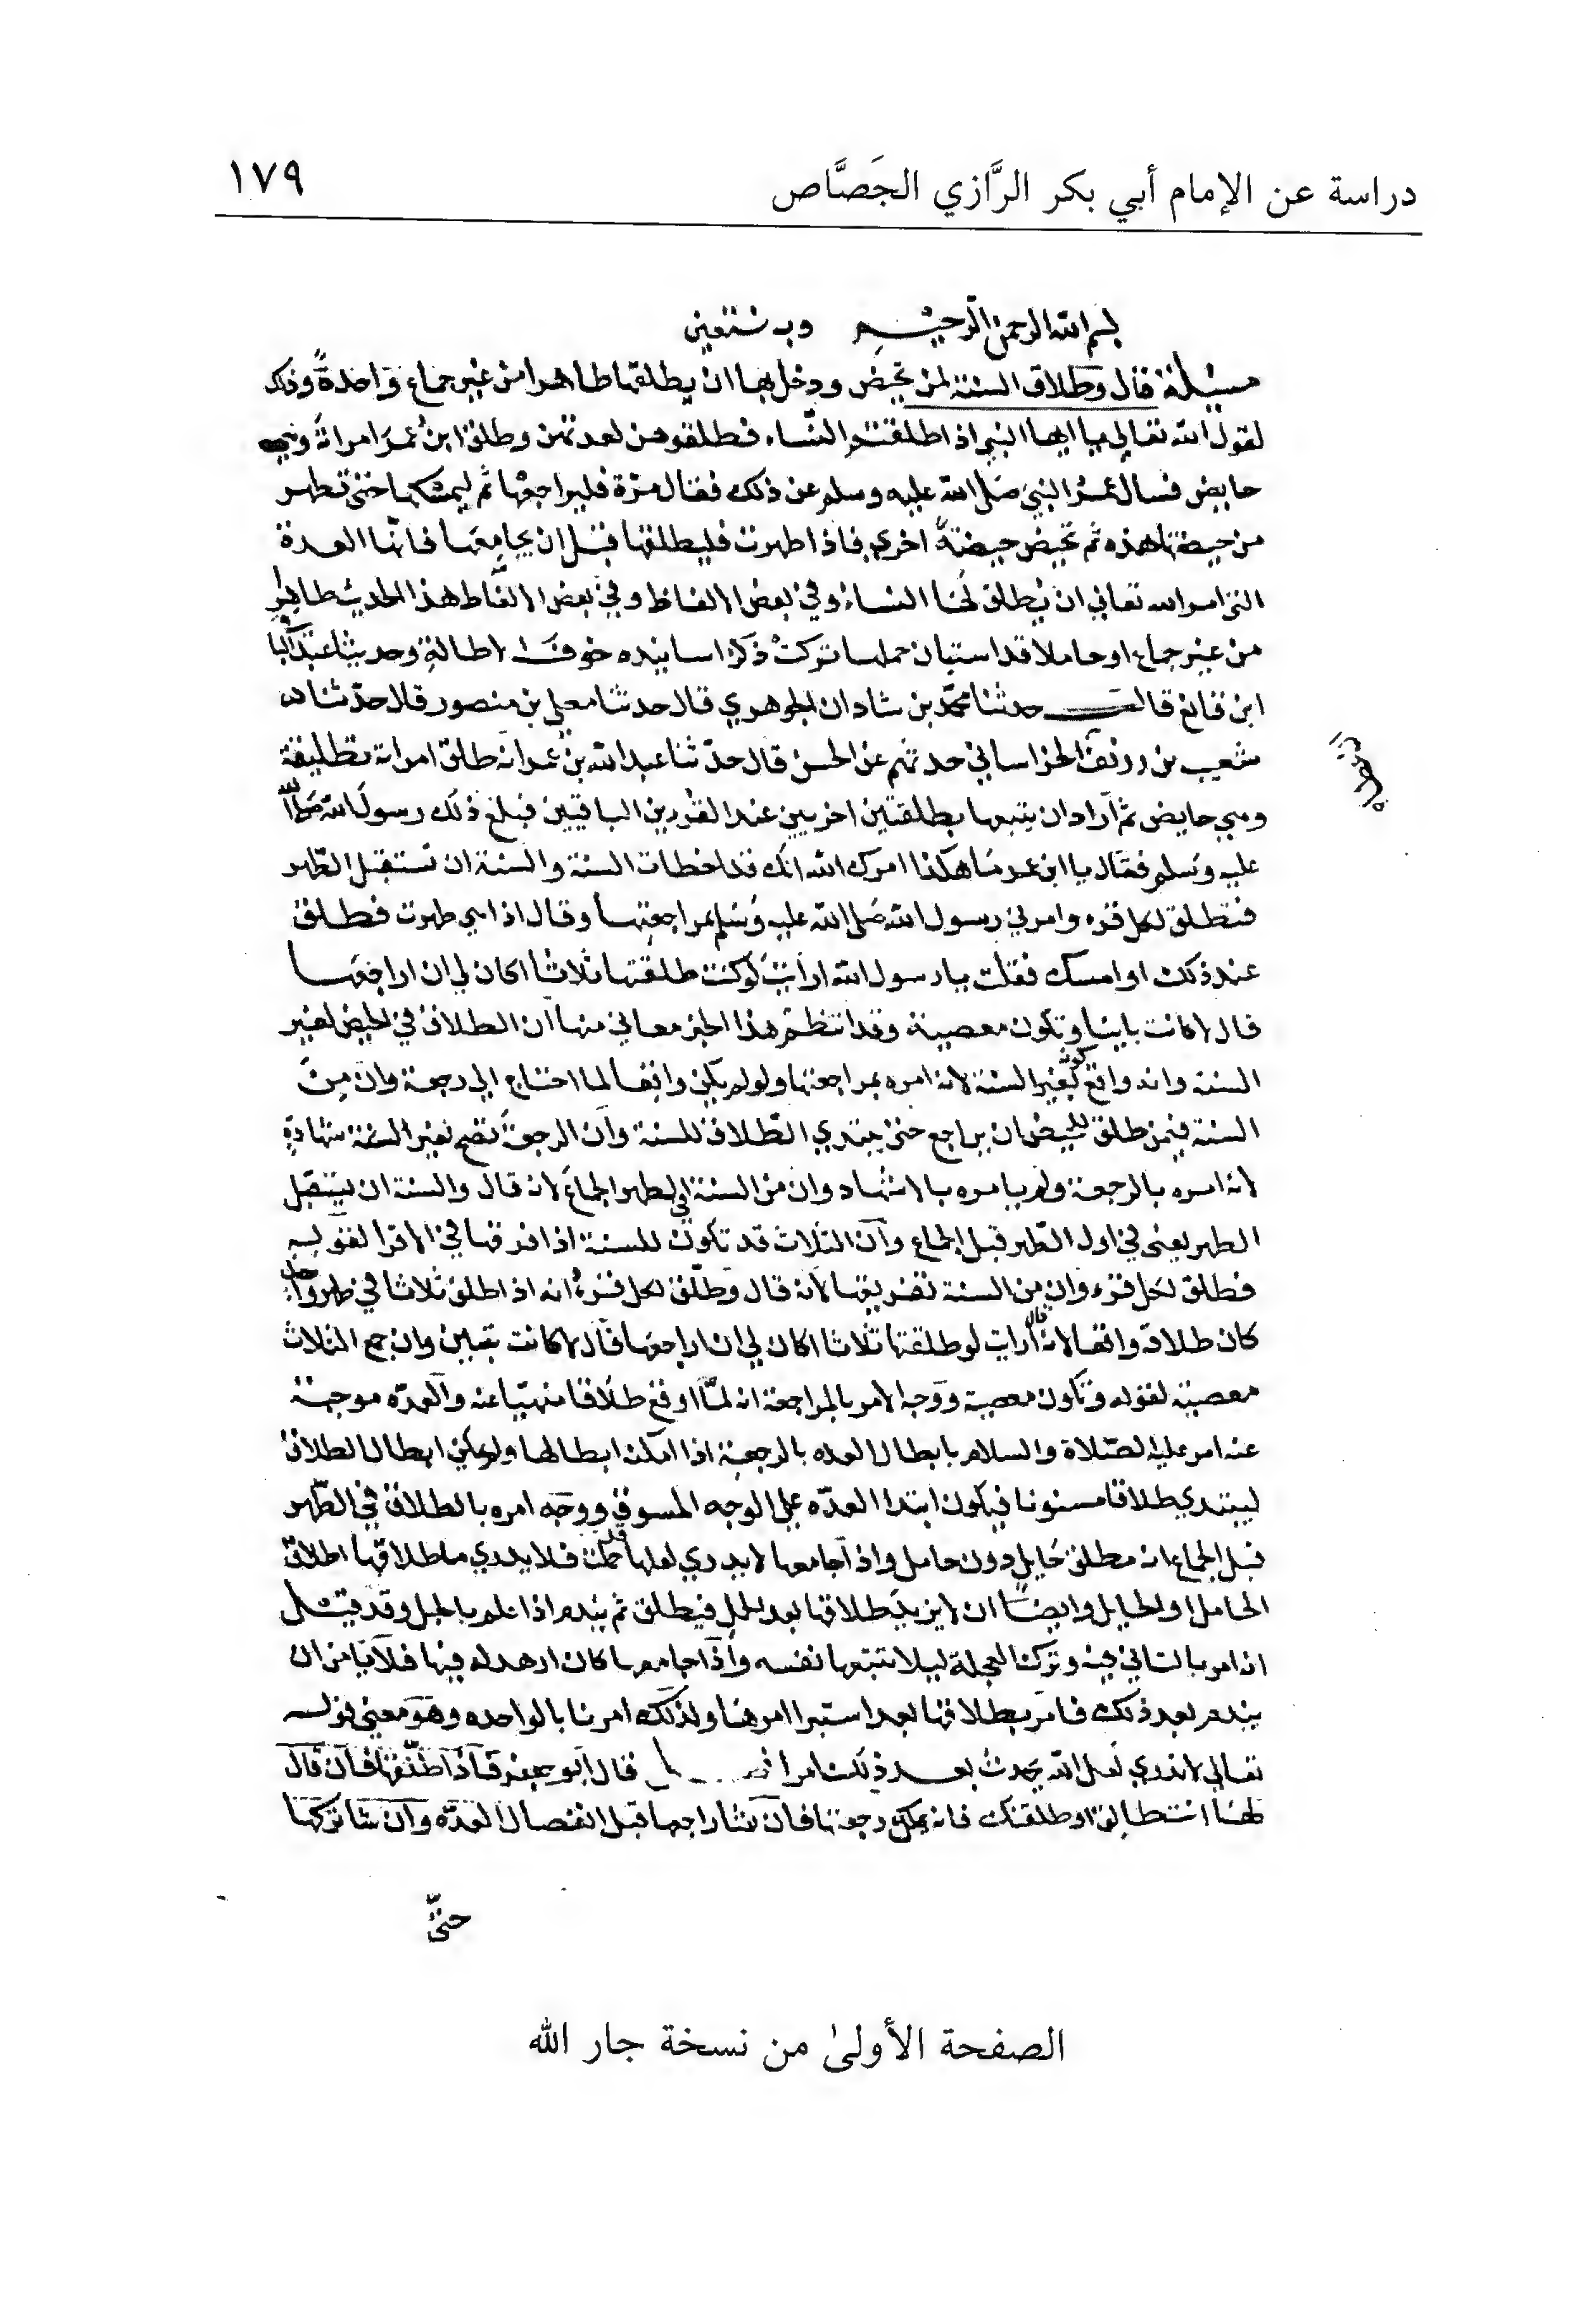 دراسة عن الإمام أبي بكر الرَّازي الجَصَّاص
١٧٩
بسم الله الرحمن الرحيم وبه نستعين
مسيلة قال وطلاق السنة لمن تحيض ودخل بها ان يطلقها طاهرا من غير جماع واحدةً وذلك
لقول الله تعالي يا ايها النبي اذا طلقتم النساء فطلقوهن لعدتهن وطلق ابن عمر امراتهُ وهي
حايض فسال عمر النبي صلى الله عليه وسلم عن ذلك فقال مره فليراجعها ثم ليمسكها حتى تطهر
من حيضتها هذه ثم تحيض حيضةً اخري فاذا طهرت فليطلقها قبل ان يجامعها فانها العدة
التي امر الله تعالي ان يطلق لها النساء وفي بعض الالفاظ وفي بعض الالفاظ هذا الحديث طاهرا
من غير جماع او حاملا قد استبان حملها تركت ذكر اسانيده خوف الاطالة وحديثا عبد الباقي
ابن قانع قال حدثنا محمد بن شاذان الجوهري قال حدثنا معلي بن منصور قال حدثنا
شعيب بن رزيق الخراساني حدثهم عن الحسن قال حدثنا عبد الله بن عمر انه طلق امراته تطليقة
وهي حايض ثم اراد ان يتبعها بطلقتين اخريين عند القرءين الباقيين فبلغ ذلك رسول الله صلى الله
عليه وسلم فقال يا ابن عمر ما هكذا امرك الله انك قد اخطات السنة والسنة ان تستقبل الطهر
فتطلق لكل قرء وامرني رسول الله صلى الله عليه وسلم بمراجعتها وقال اذا هي طهرت فطلق
عند ذلك او امسك فقلت يا رسول الله ارايت لو كنت طلقتها ثلاثا اكان لي ان اراجعها
قال لا كانت تبين وتكون معصية وقد انتظم هذا الخبر معاني منها ان الطلاق في الحيض لغير
السنة وانه واقع كونه لغير السنة لانه امره بمراجعتها ولو لم يكن واقعا لما احتاج الي رجعة وان من
السنة فيمن طلق للحيض ان يراجع حتى يبتدي الطلاق للسنة وان الرجعة تصح بغير شهادة
لانه امره بالرجعة ولم يامره بالاشهاد وان من السنة الطهر الجماع لانه قال والسنة ان تستقبل
الطهر يعني في اول الطهر قبل الجماع وان الثلاث قد تكون للسنة اذا فرقها في الاقرا لقوله
فطلق لكل قرء وان من السنة تفريقها لانه قال وطلق لكل قرء وانه اذا طلق ثلاثا في طهر واحد
كان طلاقه واقعا لانه قال ارايت لو طلقتها ثلاثا اكان لي ان اراجعها قال لا كانت تبين وان جمع الثلاث
معصية لقوله وتكون معصية ووجه الامر بالمراجعة انه لما اوقع طلاقا منهيا عنه والعده موجبة
عنه امر عليه الصلاة والسلام بابطال العده بالرجعة اذا امكن ابطالها ولم يكن ابطال الطلاق
ليبتدي طلاقا مسنونا فيكون ابتدا العده علي الوجه المسنون ووجه امره بالطلاق في الطهر
قبل الجماع انه مطلق حايل دون حامل واذا جامعها لا يدري لعلها قد حملت فلا يدري ما طلاقها اطلاق
الحامل او الحايل وايضا ان لا يريد طلاقها بعد الحمل فيطلق ثم يندم اذا علم بالحبل وقد قيل
انه امر بالتاني فيه وترك العجلة ليلا تتبعها نفسه واذا جامعها كان ازهد له فيها فلا يامن ان
يندم بعد ذلك فامر بطلاقها بعد استبرا امرها ولذلك امرنا بالواحده وهو معني قوله
تعالي لا تدري لعل الله يحدث بعد ذلك امرا قال ابو جعفر فاذا طلقها فان قال
لها انت طالق او طلقتك فانه يملك رجعتها فان شا راجعها قبل انقضا العده وان شا تركها
حتى
الصفحة الأولىٰ من نسخة جار الله